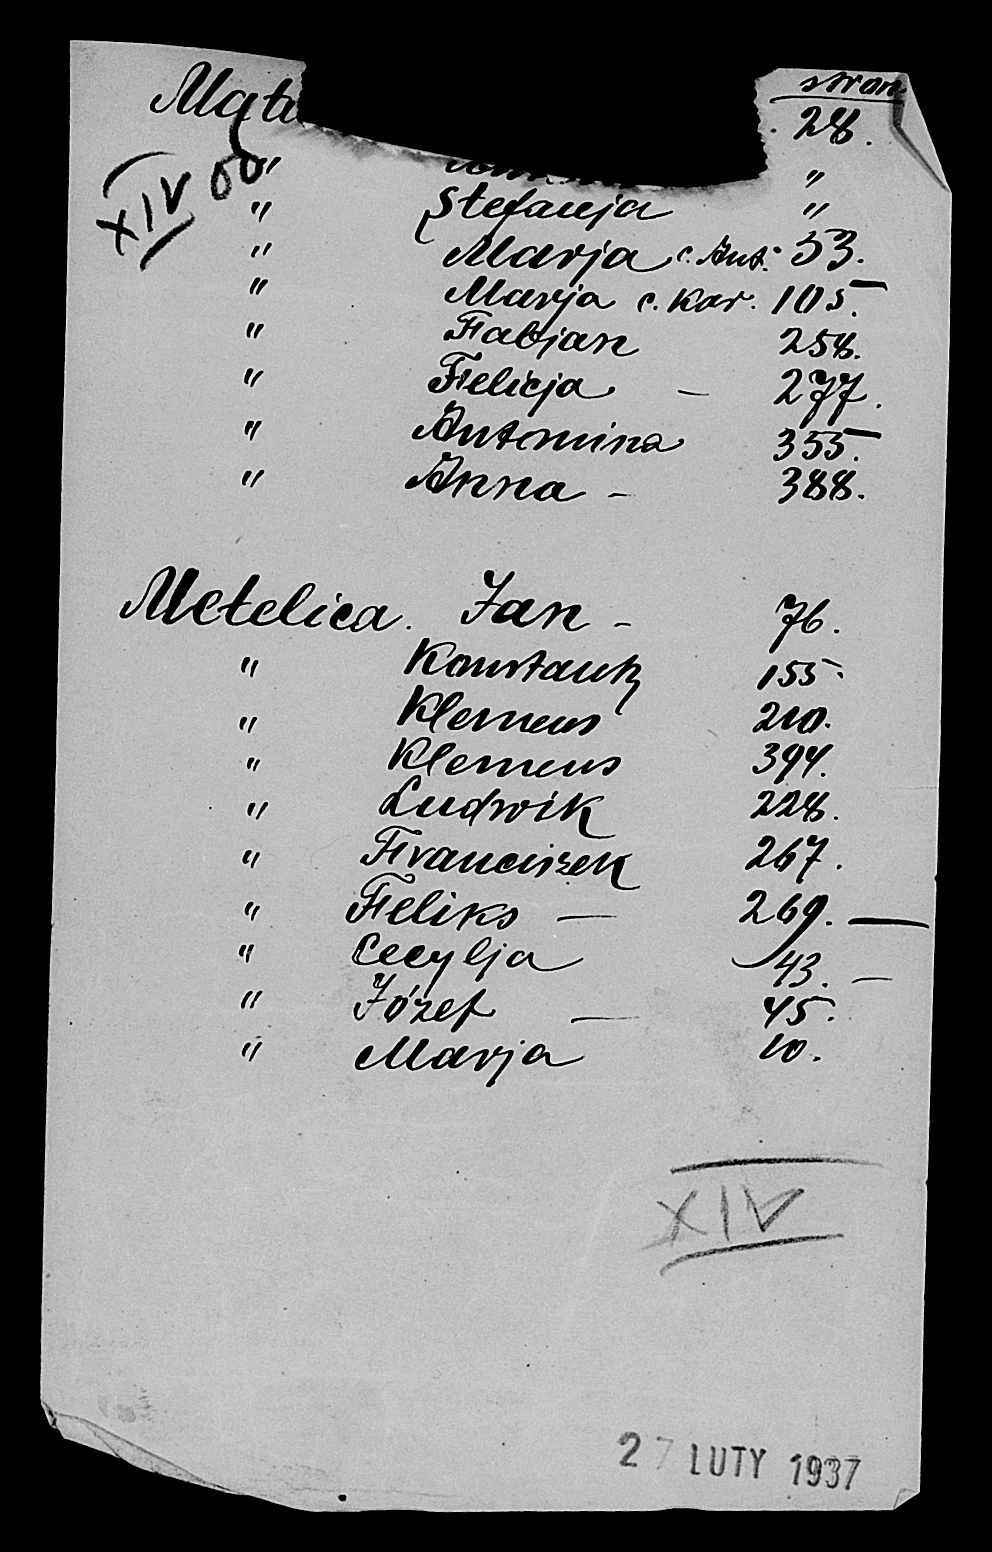 stron
28.
XIV
" "
" Stefanja "
" Marja c. Ant. 53.
" Marja c. Kar. 105.
" Fabjan 258.
" Felicja - 277.
" Antonina 355.
" Anna - 388.
Metelica. Jan - 76.
" Konstanty 155.
" Klemens 210.
" Klemens 394.
" Ludwik 228.
" Franciszek 267.
" Feliks — 269. —
" Cecylja 43. —
" Józef — 45.
" Marja 10.
XIV
27 LUTY 1937